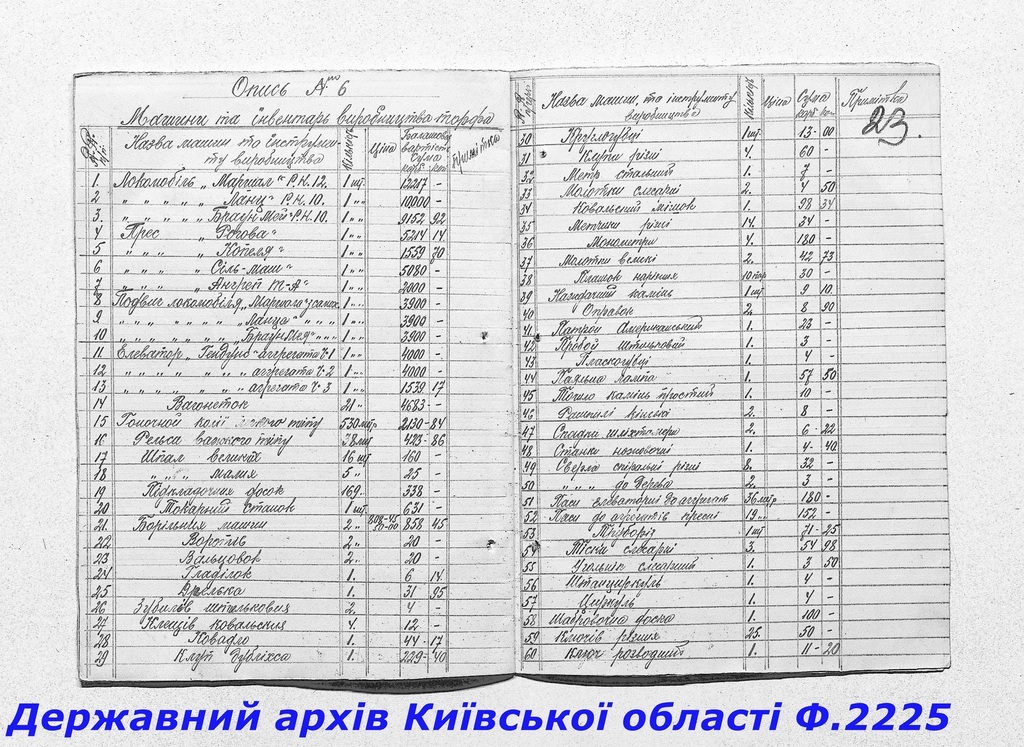 Опись № 6
Машини та інвентарь виробництва торфа
Назва машин та інструменту виробництва Кількість Ціна Балансова вартість Сума карб. коп. Примітка
1. Локомобіль „Маршал" Р.К. 12. 1 шт. 12217 –
2 „ „ „ „ „ „Ланц" Р.К. 10. 1 „ „ 10000 –
3. „ „ „ „ „ Браун Мей" Р.К. 10. 1 „ „ 9152 92
4 Прес „Рогова" 1 „ „ 5214 14
5 „ „ „ „ Копеля" 1 „ „ 1559 30
6 „ „ „ „ Сіль-маш" 1 „ „ 5080 –
7 „ „ „ „ 1 „ „ 2000 –
8 Подвиг локомобіля „Маршал" 1 „ „ 3900 –
9 „ „ „ „ „ „ „Ланца" „ „ „ 1 „ „ 3900 –
10 „ „ „ „ „ „ „Браун Мея" „ „ 1 „ „ 3900 –
11 Елеватор „ агрегата ч. 1 1 „ „ 4000 –
12 „ „ „ „ „ агрегата ч. 2 1 „ „ 4000 –
13 „ „ „ „ „ агрегата ч. 3 1 „ „ 1539 17
14 Вагонеток 21 „ 4683 –
15 Гоночной колії типу 530 мтр 2130 – 84
16 Рельса важкого типу 38 мт 423 – 86
17 Шпал великих 16 шт 160 –
18 „ „ „ малих 5 „ 25 –
19 Підкладочних досок 169 „ 338 –
20 Токарний станок 1 шт 631 –
21. машин 2 „ 858 45
22 2 „ 20 –
23 Вальцовок 2 „ 20 –
24 Гладілок 1. 6 14
25 1. 31 95
26 2. 4 –
27 Клещів ковальських 4. 12 –
28 Ковадло 1. 44 – 17
29 Клуп 1. 229 – 40
Назва машин, та інструменту виробництва Кількість Ціна Сума карб. коп. Примітка
23.
30 Круглогубці 1 шт. 13 – 00
31 Клупи різні 4. 60 –
32 Метр стальний 1. 7 –
33 Молотки слюсарні 2. 4 50
34 Ковальский мішок 1. 98 34
35 Метчики різні 14. 34 –
36 Монометри 4. 180 –
37 Молотки великі 2. 42 73
38 Плашок 10 пар 30 –
39 Наждачний камінь 1 шт 9 10
40 Оправок 2. 8 90
41 Патрон Американський 1. 23 –
42 1. 3 –
43 Плоскогубці 1. 4 –
44 Паяльна лампа 1. 57 50
45 Точило камінь простий 1. 10 –
46 Рашпилі кінські 2. 8 –
47 2. 6 – 22
48 Станки ножовочні 1. 4 – 40
49 Сверла спіральні різні 8. 32 –
50 „ „ „ до дерева 2. 3 –
51 Паси елеваторні до агрегат 36 мтр 180 –
52 Паси до агрегатів пресні 19 „ „ 152 –
53 Труборіз 1 шт 71 – 25
54 Тіски слюсарні 3. 54 98
55 Угольник слюсарний 1. 3 50
56 Штангциркуль 1. 4 –
57 Циркуль 1. 4 –
58 доска 1. 100 –
59 Ключів різних 25. 50 –
60 Ключ розводний 1. 11 – 20
Державний архів Київської області Ф.2225